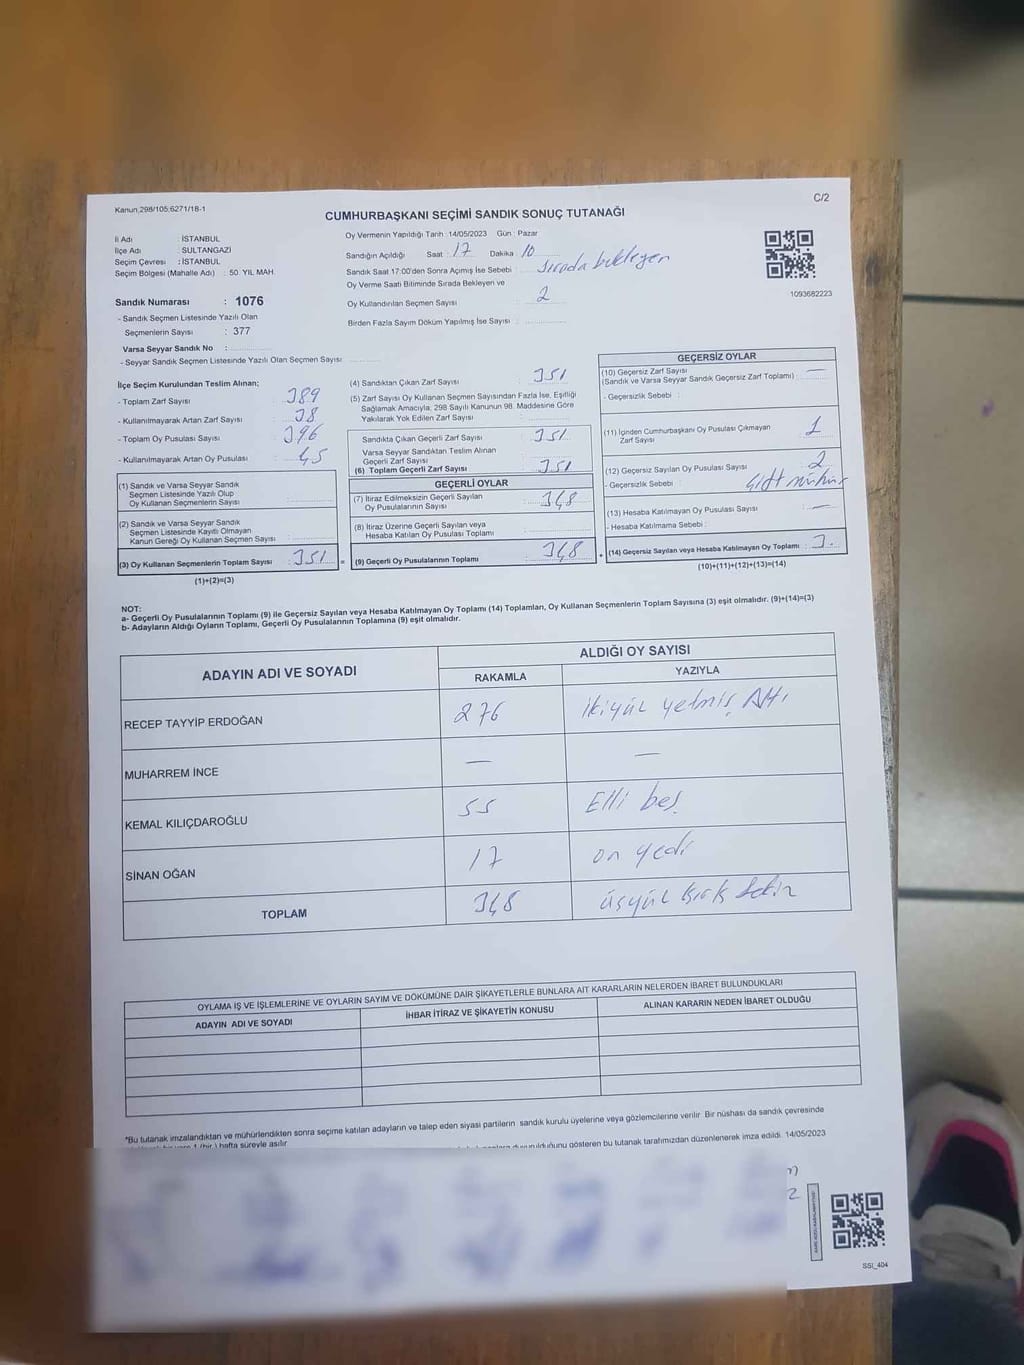 Kanun 298/105,6271/18-1
C/2
CUMHURBAŞKANI SEÇİMİ SANDIK SONUÇ TUTANAĞI
İl Adı : İSTANBUL
İlçe Adı : SULTANGAZİ
Seçim Çevresi : İSTANBUL
Seçim Bölgesi (Mahalle Adı) : 50. YIL MAH.
Sandık Numarası : 1076
- Sandık Seçmen Listesinde Yazılı Olan
Seçmenlerin Sayısı : 377
Varsa Seyyar Sandık No :
- Seyyar Sandık Seçmen Listesinde Yazılı Olan Seçmen Sayısı
Oy Vermenin Yapıldığı Tarih :14/05/2023 Gün : Pazar
Sandığın Açıldığı Saat : 17 Dakika : 10
Sandık Saat 17:00'den Sonra Açımış İse Sebebi : Sırada bekleyen
Oy Verme Saati Bitiminde Sırada Bekleyen ve
Oy Kullandırılan Seçmen Sayısı : 2
Birden Fazla Sayım Döküm Yapılmış İse Sayısı :
1093682223
İlçe Seçim Kurulundan Teslim Alınan;
- Toplam Zarf Sayısı : 389
- Kullanılmayarak Artan Zarf Sayısı : 38
- Toplam Oy Pusulası Sayısı : 396
- Kullanılmayarak Artan Oy Pusulası : 45
(1) Sandık ve Varsa Seyyar Sandık
Seçmen Listesinde Yazılı Olup
Oy Kullanan Seçmenlerin Sayısı :
(2) Sandık ve Varsa Seyyar Sandık
Seçmen Listesinde Kayıtlı Olmayan
Kanun Gereği Oy Kullanan Seçmen Sayısı :
(3) Oy Kullanan Seçmenlerin Toplam Sayısı : 351
(1)+(2)=(3)
(4) Sandıktan Çıkan Zarf Sayısı : 351
(5) Zarf Sayısı Oy Kullanan Seçmen Sayısından Fazla İse, Eşitliği
Sağlamak Amacıyla; 298 Sayılı Kanunun 98. Maddesine Göre
Yakılarak Yok Edilen Zarf Sayısı :
Sandıkta Çıkan Geçerli Zarf Sayısı : 351
Varsa Seyyar Sandıktan Teslim Alınan
Geçerli Zarf Sayısı :
(6) Toplam Geçerli Zarf Sayısı : 351
GEÇERLİ OYLAR
(7) İtiraz Edilmeksizin Geçerli Sayılan
Oy Pusulalarının Sayısı : 348
(8) İtiraz Üzerine Geçerli Sayılan veya
Hesaba Katılan Oy Pusulaları Toplamı :
= (9) Geçerli Oy Pusulalarının Toplamı : 348
GEÇERSİZ OYLAR
(10) Geçersiz Zarf Sayısı
(Sandık ve Varsa Seyyar Sandık Geçersiz Zarf Toplamı) : —
- Geçersizlik Sebebi :
(11) İçinden Cumhurbaşkanı Oy Pusulası Çıkmayan
Zarf Sayısı : 1
(12) Geçersiz Sayılan Oy Pusulası Sayısı : 2
- Geçersizlik Sebebi : çift mühür
(13) Hesaba Katılmayan Oy Pusulası Sayısı : —
- Hesaba Katılmama Sebebi :
+ (14) Geçersiz Sayılan veya Hesaba Katılmayan Oy Toplamı : 3.
(10)+(11)+(12)+(13)=(14)
NOT:
a- Geçerli Oy Pusulalarının Toplamı (9) ile Geçersiz Sayılan veya Hesaba Katılmayan Oy Toplamı (14) Toplamları, Oy Kullanan Seçmenlerin Toplam Sayısına (3) eşit olmalıdır. (9)+(14)=(3)
b- Adayların Aldığı Oyların Toplamı, Geçerli Oy Pusulalarının Toplamına (9) eşit olmalıdır.
ADAYIN ADI VE SOYADI
ALDIĞI OY SAYISI
RAKAMLA YAZIYLA
RECEP TAYYİP ERDOĞAN 276 ikiyüz yetmiş Altı
MUHARREM İNCE — —
KEMAL KILIÇDAROĞLU 55 Elli beş
SİNAN OĞAN 17 on yedi
TOPLAM 348 üçyüz kırk Sekiz
OYLAMA İŞ VE İŞLEMLERİNE VE OYLARIN SAYIM VE DÖKÜMÜNE DAİR ŞİKAYETLERLE BUNLARA AİT KARARLARIN NELERDEN İBARET BULUNDUKLARI
ADAYIN ADI VE SOYADI İHBAR İTİRAZ VE ŞİKAYETİN KONUSU ALINAN KARARIN NEDEN İBARET OLDUĞU
*Bu tutanak imzalandıktan ve mühürlendikten sonra seçime katılan adayların ve talep eden siyasi partilerin sandık kurulu üyelerine veya gözlemcilerine verilir. Bir nüshası da sandık çevresinde
1 (bir) hafta süreyle asılır.
gösteren bu tutanak tarafımızdan düzenlenerek imza edildi. 14/05/2023
SSI_404